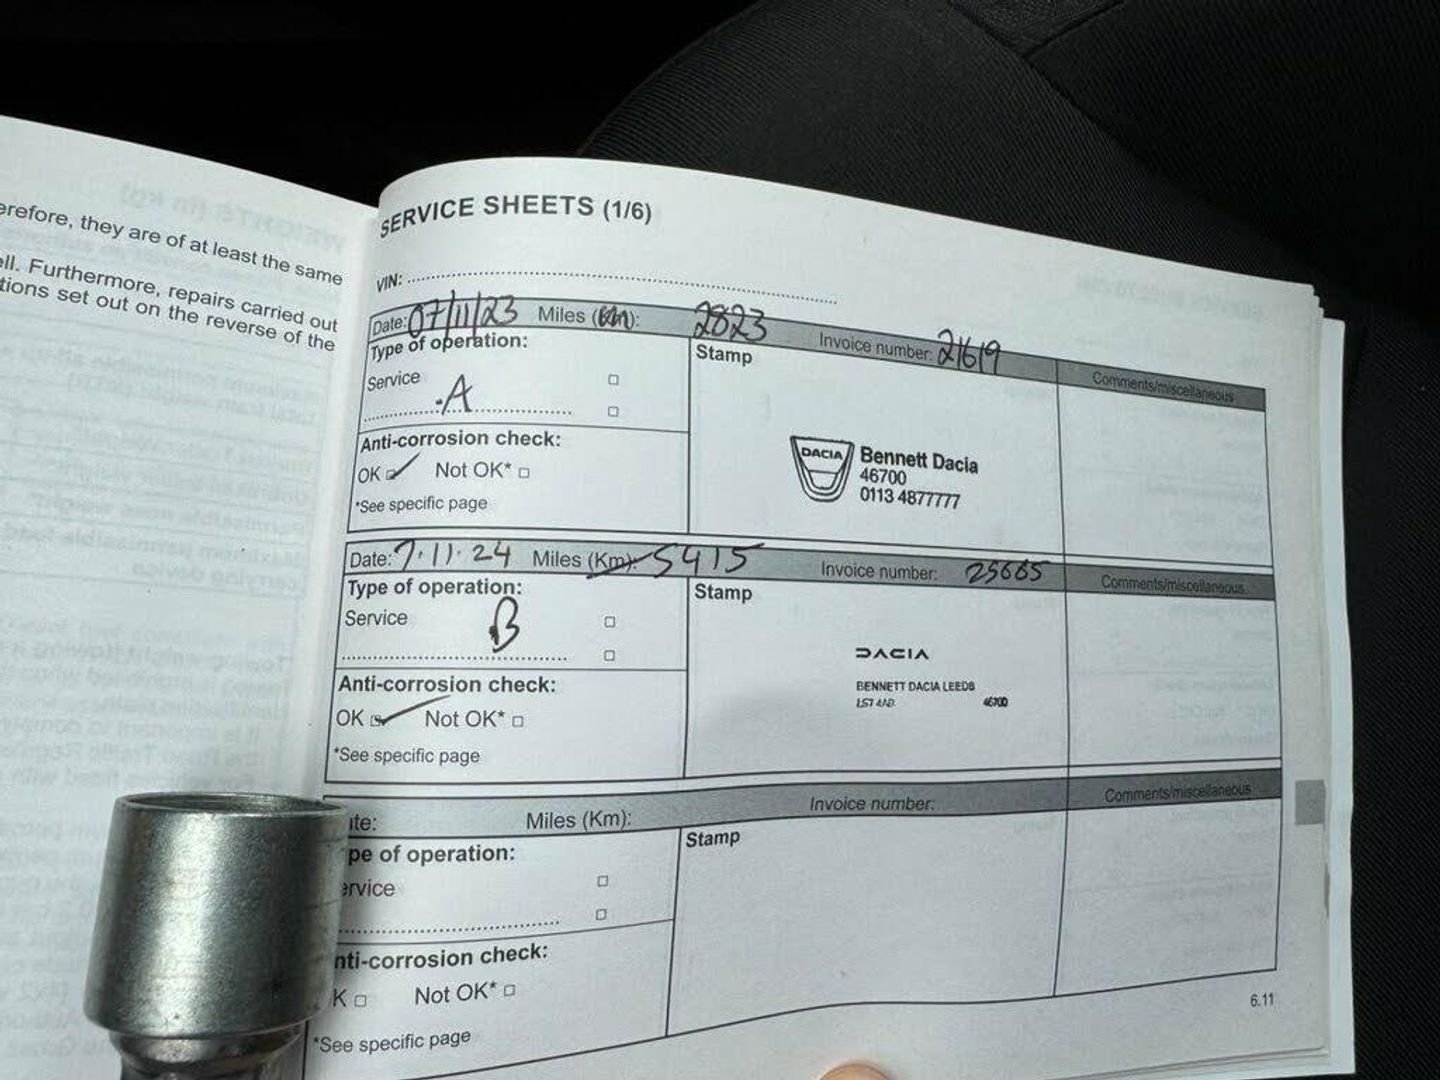 erefore, they are of at least the same
ell. Furthermore, repairs carried out
tions set out on the reverse of the
SERVICE SHEETS (1/6)
VIN:
Date: 07/11/23 Miles (Km): 2823 Invoice number: 21619
Type of operation: Stamp Comments/miscellaneous
Service
A
Anti-corrosion check:
OK Not OK*
*See specific page
DACIA Bennett Dacia
46700
0113 4877777
Date: 7.11.24 Miles (Km): 5415 Invoice number: 25665
Type of operation: Stamp Comments/miscellaneous
Service B
Anti-corrosion check:
OK Not OK*
*See specific page
DACIA
BENNETT DACIA LEEDS
LS7 4AD 46700
ate: Miles (Km): Invoice number: Comments/miscellaneous
pe of operation: Stamp
ervice
nti-corrosion check:
K Not OK*
*See specific page
6.11